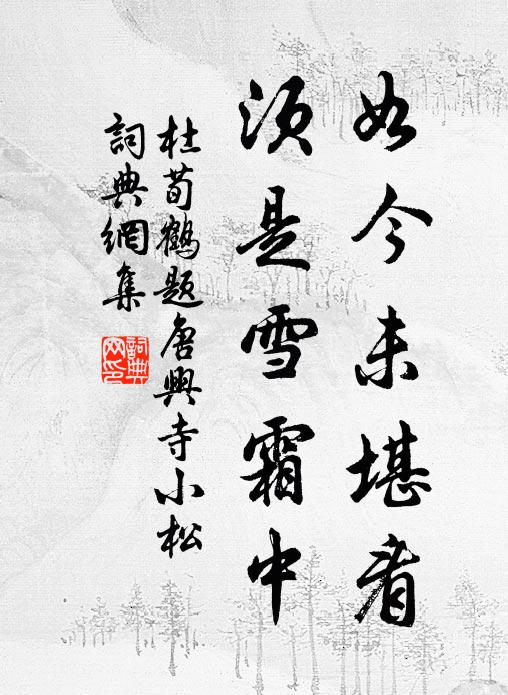 如今未堪看
須是雪霜中
杜荀鶴題唐興寺小松
詞典網集
詞典
网印